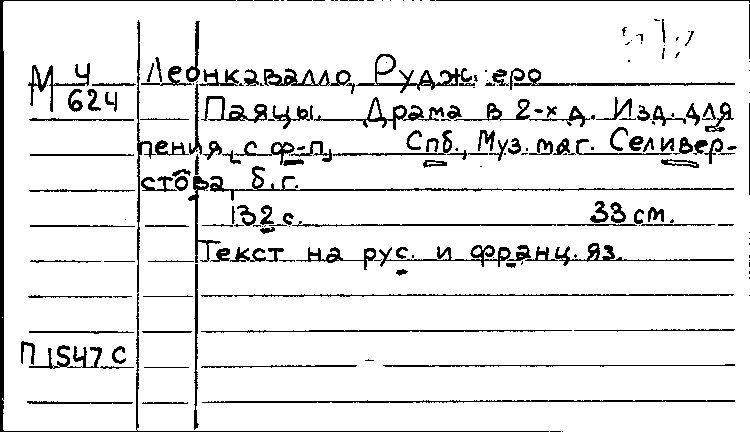 М 4/624 Леонкавалло, Руджеро
Паяцы. Драма в 2-х д. Изд. для
пения, с ф-п, Спб., Муз. маг. Селивер-
стова, б. г.
132 с. 33 см.
Текст на рус. и франц. яз.
П 1547 с